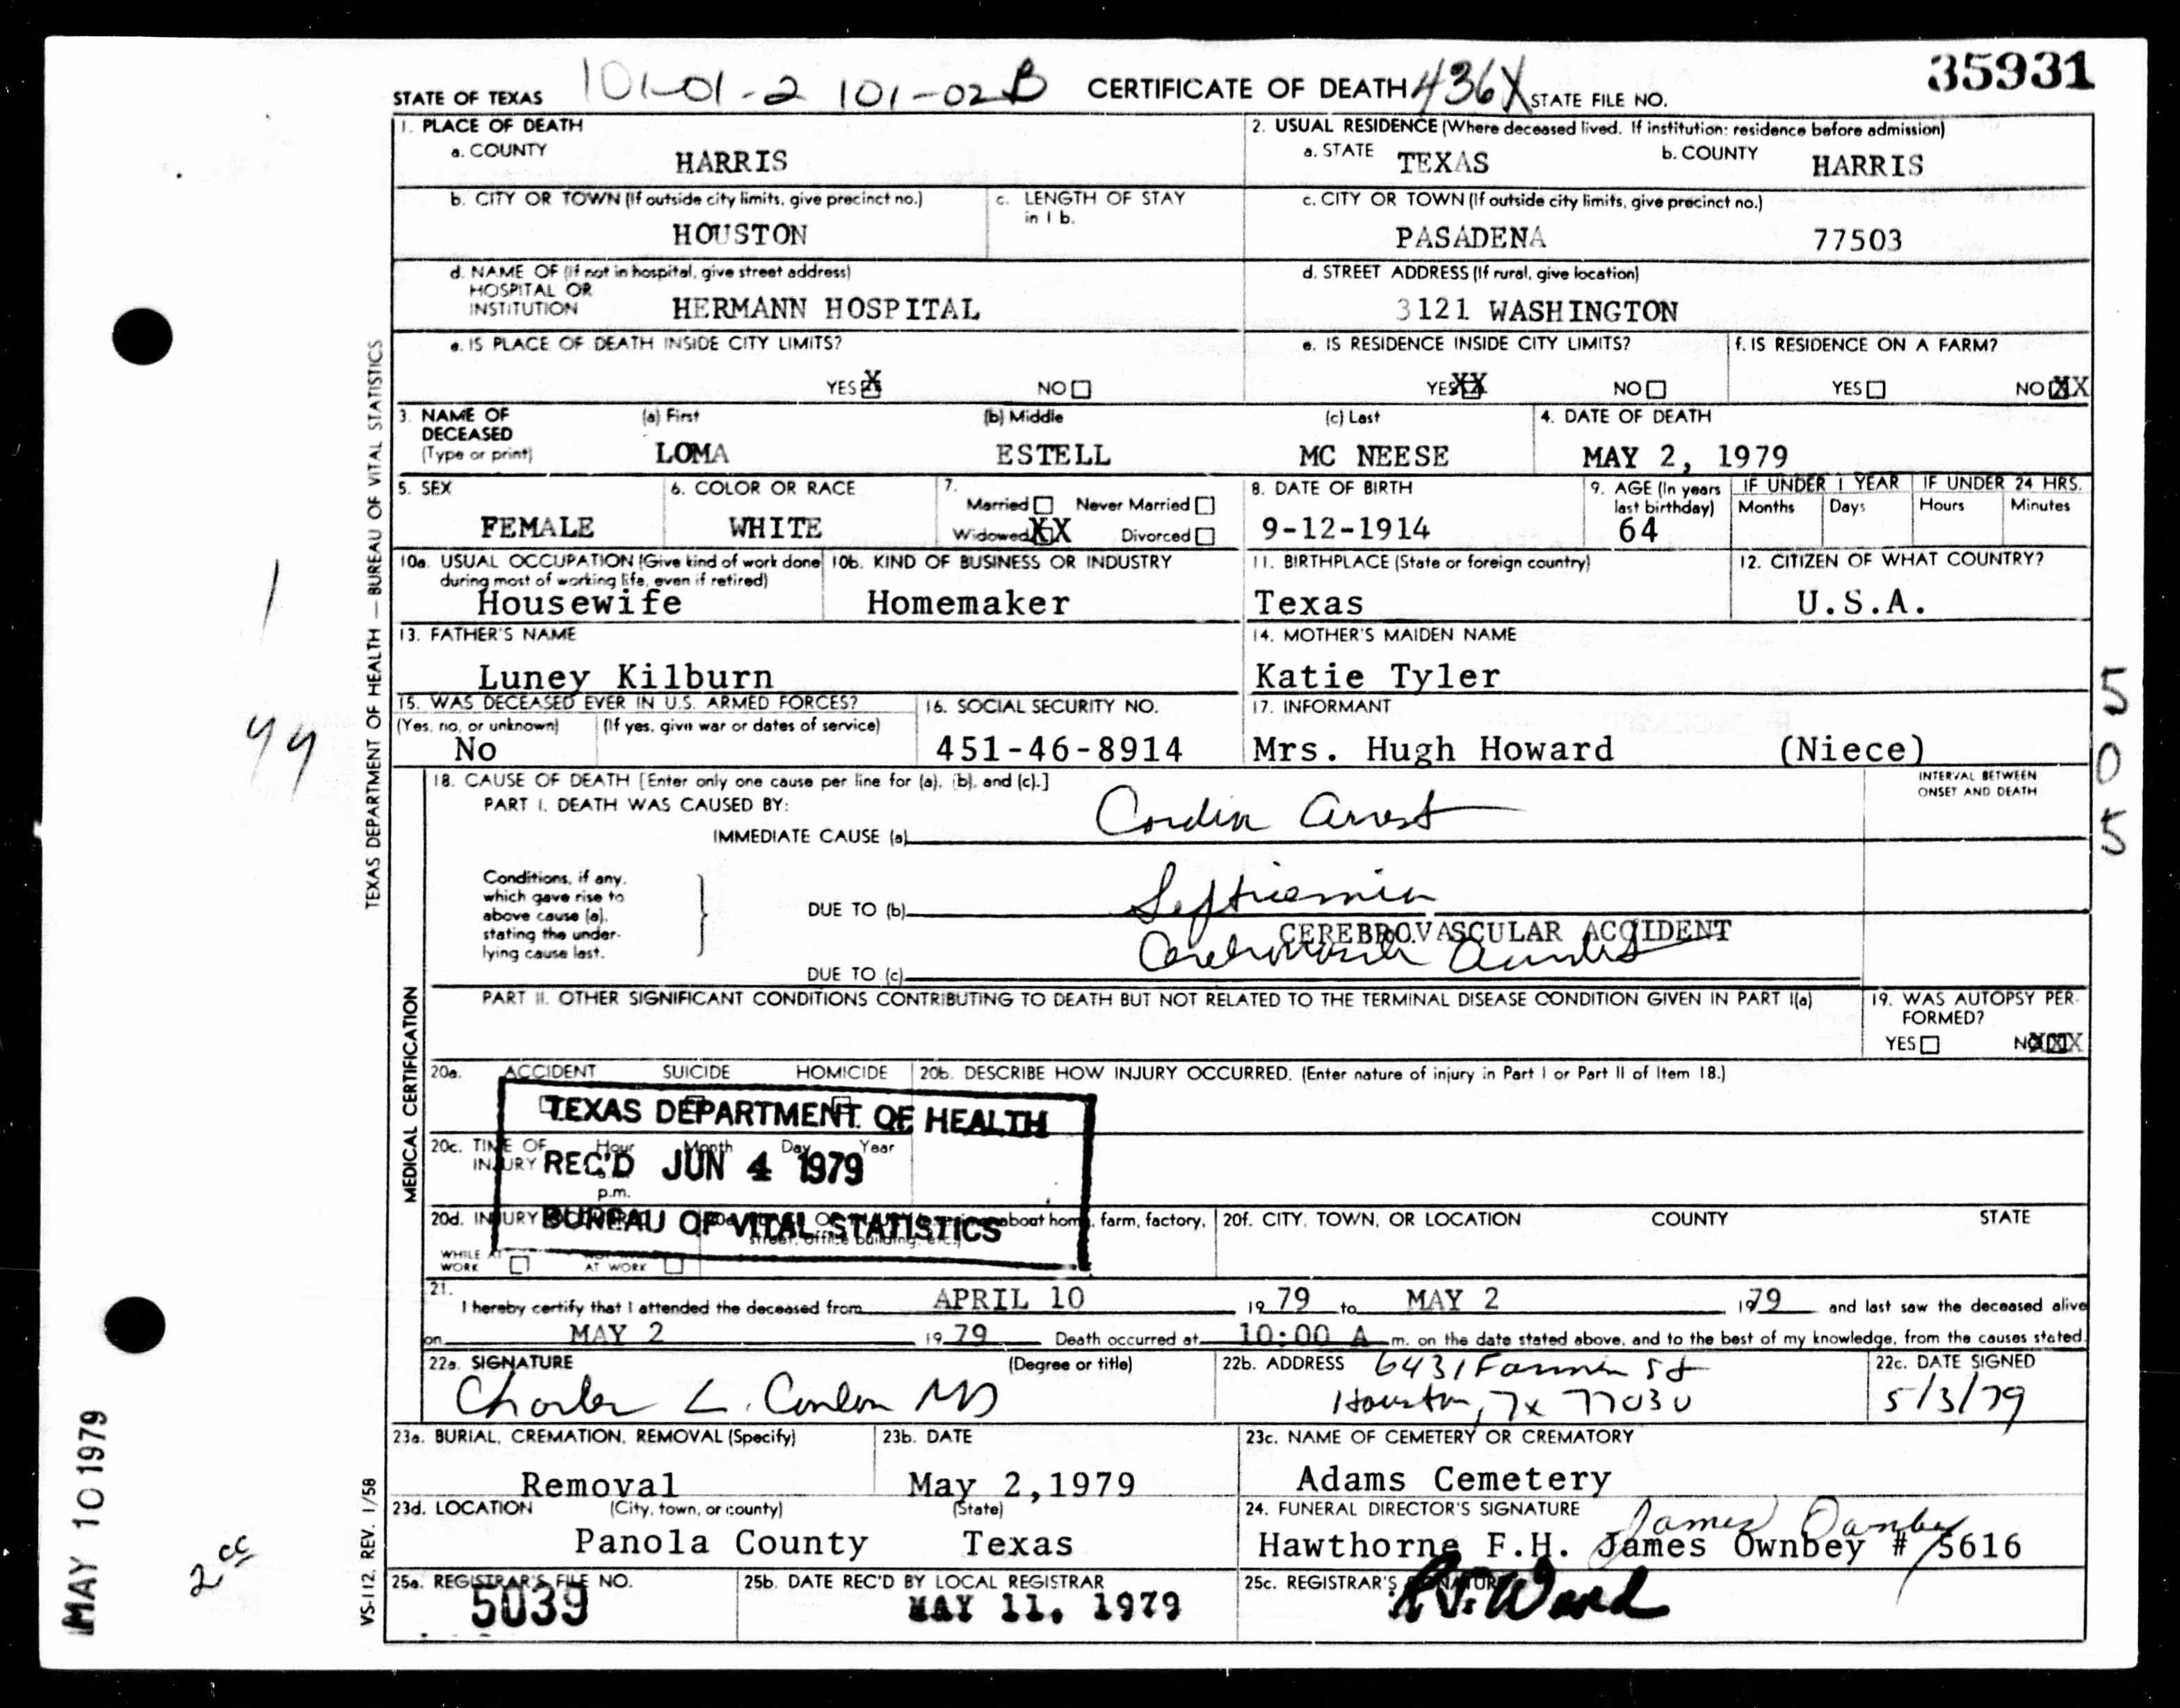 35931
STATE OF TEXAS 101-01-2 101-02B CERTIFICATE OF DEATH 436X STATE FILE NO.
1. PLACE OF DEATH
a. COUNTY
HARRIS
2. USUAL RESIDENCE (Where deceased lived. If institution: residence before admission)
a. STATE TEXAS b. COUNTY HARRIS
b. CITY OR TOWN (If outside city limits, give precinct no.)
HOUSTON
c. LENGTH OF STAY
in 1 b.
c. CITY OR TOWN (If outside city limits, give precinct no.)
PASADENA 77503
d. NAME OF (If not in hospital, give street address)
HOSPITAL OR
INSTITUTION HERMANN HOSPITAL
d. STREET ADDRESS (If rural, give location)
3121 WASHINGTON
e. IS PLACE OF DEATH INSIDE CITY LIMITS?
YES X NO
e. IS RESIDENCE INSIDE CITY LIMITS?
YES XX NO
f. IS RESIDENCE ON A FARM?
YES NO XX
3. NAME OF
DECEASED
(Type or print)
(a) First (b) Middle (c) Last
LOMA ESTELL MC NEESE
4. DATE OF DEATH
MAY 2, 1979
5. SEX
FEMALE
6. COLOR OR RACE
WHITE
7.
Married Never Married
Widowed XX Divorced
8. DATE OF BIRTH
9-12-1914
9. AGE (In years
last birthday)
64
IF UNDER 1 YEAR IF UNDER 24 HRS.
Months Days Hours Minutes
10a. USUAL OCCUPATION (Give kind of work done
during most of working life, even if retired)
Housewife
10b. KIND OF BUSINESS OR INDUSTRY
Homemaker
11. BIRTHPLACE (State or foreign country)
Texas
12. CITIZEN OF WHAT COUNTRY?
U.S.A.
13. FATHER'S NAME
Luney Kilburn
14. MOTHER'S MAIDEN NAME
Katie Tyler
15. WAS DECEASED EVER IN U.S. ARMED FORCES?
(Yes, no, or unknown) (If yes, give war or dates of service)
No
16. SOCIAL SECURITY NO.
451-46-8914
17. INFORMANT
Mrs. Hugh Howard (Niece)
18. CAUSE OF DEATH [Enter only one cause per line for (a), (b), and (c).]
PART I. DEATH WAS CAUSED BY:
IMMEDIATE CAUSE (a) Cardiac Arrest
INTERVAL BETWEEN
ONSET AND DEATH
Conditions, if any,
which gave rise to
above cause (a),
stating the under-
lying cause last.
DUE TO (b) Septicemia
CEREBROVASCULAR ACCIDENT
DUE TO (c)
PART II. OTHER SIGNIFICANT CONDITIONS CONTRIBUTING TO DEATH BUT NOT RELATED TO THE TERMINAL DISEASE CONDITION GIVEN IN PART I(a)
19. WAS AUTOPSY PER-
FORMED?
YES NO
20a. ACCIDENT SUICIDE HOMICIDE
20b. DESCRIBE HOW INJURY OCCURRED. (Enter nature of injury in Part I or Part II of Item 18.)
TEXAS DEPARTMENT OF HEALTH
20c. TIME OF
INJURY
Hour Month Day Year
p.m.
REC'D JUN 4 1979
BUREAU OF VITAL STATISTICS
20d. INJURY
WHILE AT
WORK
AT WORK
about home, farm, factory,
street, office building, etc.)
20f. CITY, TOWN, OR LOCATION COUNTY STATE
21.
I hereby certify that I attended the deceased from APRIL 10 1979 to MAY 2 1979 and last saw the deceased alive
on MAY 2 1979 Death occurred at 10:00 A m. on the date stated above, and to the best of my knowledge, from the causes stated.
22a. SIGNATURE (Degree or title)
Charles L. Conlon MD
22b. ADDRESS 6431 Fannin St
Houston, Tx 77030
22c. DATE SIGNED
5/3/79
23a. BURIAL, CREMATION, REMOVAL (Specify)
Removal
23b. DATE
May 2,1979
23c. NAME OF CEMETERY OR CREMATORY
Adams Cemetery
23d. LOCATION (City, town, or county) (State)
Panola County Texas
24. FUNERAL DIRECTOR'S SIGNATURE James Ownbey
Hawthorne F.H. James Ownbey # 5616
25a. REGISTRAR'S FILE NO.
5039
25b. DATE REC'D BY LOCAL REGISTRAR
MAY 11. 1979
25c. REGISTRAR'S SIGNATURE
TEXAS DEPARTMENT OF HEALTH — BUREAU OF VITAL STATISTICS
MEDICAL CERTIFICATION
VS-112, REV. 1/58
MAY 10 1979
2cc
505